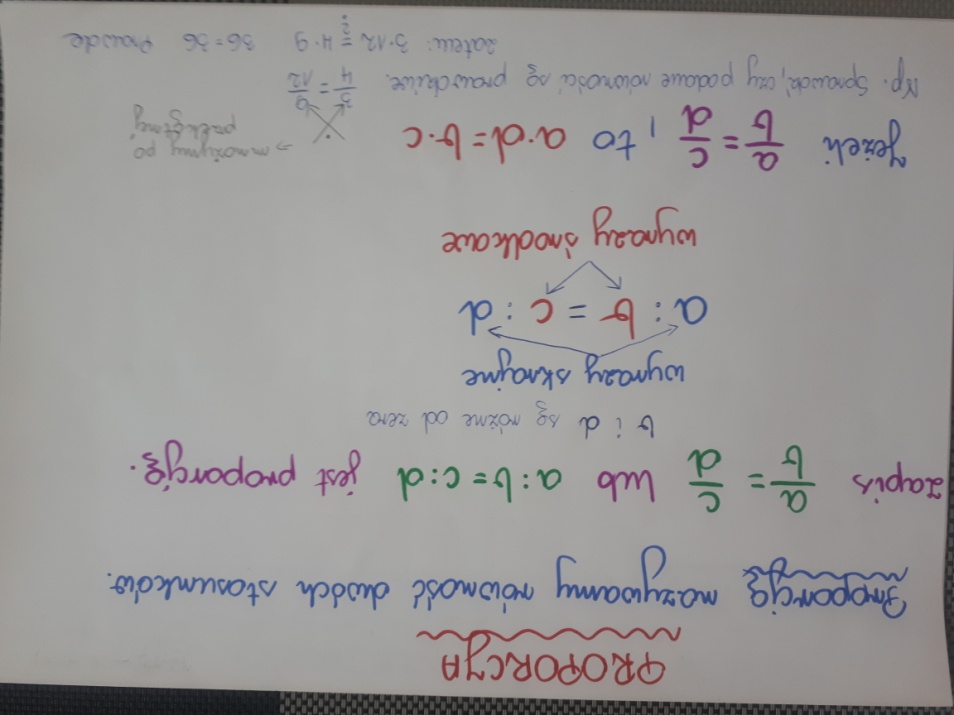 PROPORCJA
Proporcją nazywamy równość dwóch stosunków.
Zapis a/b = c/d lub a : b = c : d jest proporcją.
b i d są różne od zera
wyrazy skrajne
a : b = c : d
wyrazy środkowe
Jeżeli a/b = c/d, to a·d = b·c
→ mnożymy po przekątnej
Np. Sprawdź, czy podane równości są prawdziwe. 3/4 = 9/12
zatem: 3·12 ≟ 4·9 36=36 Prawda